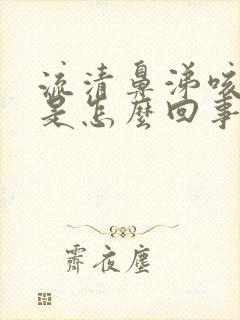 流清鼻涕咳
是怎麼回事
霽夜塵